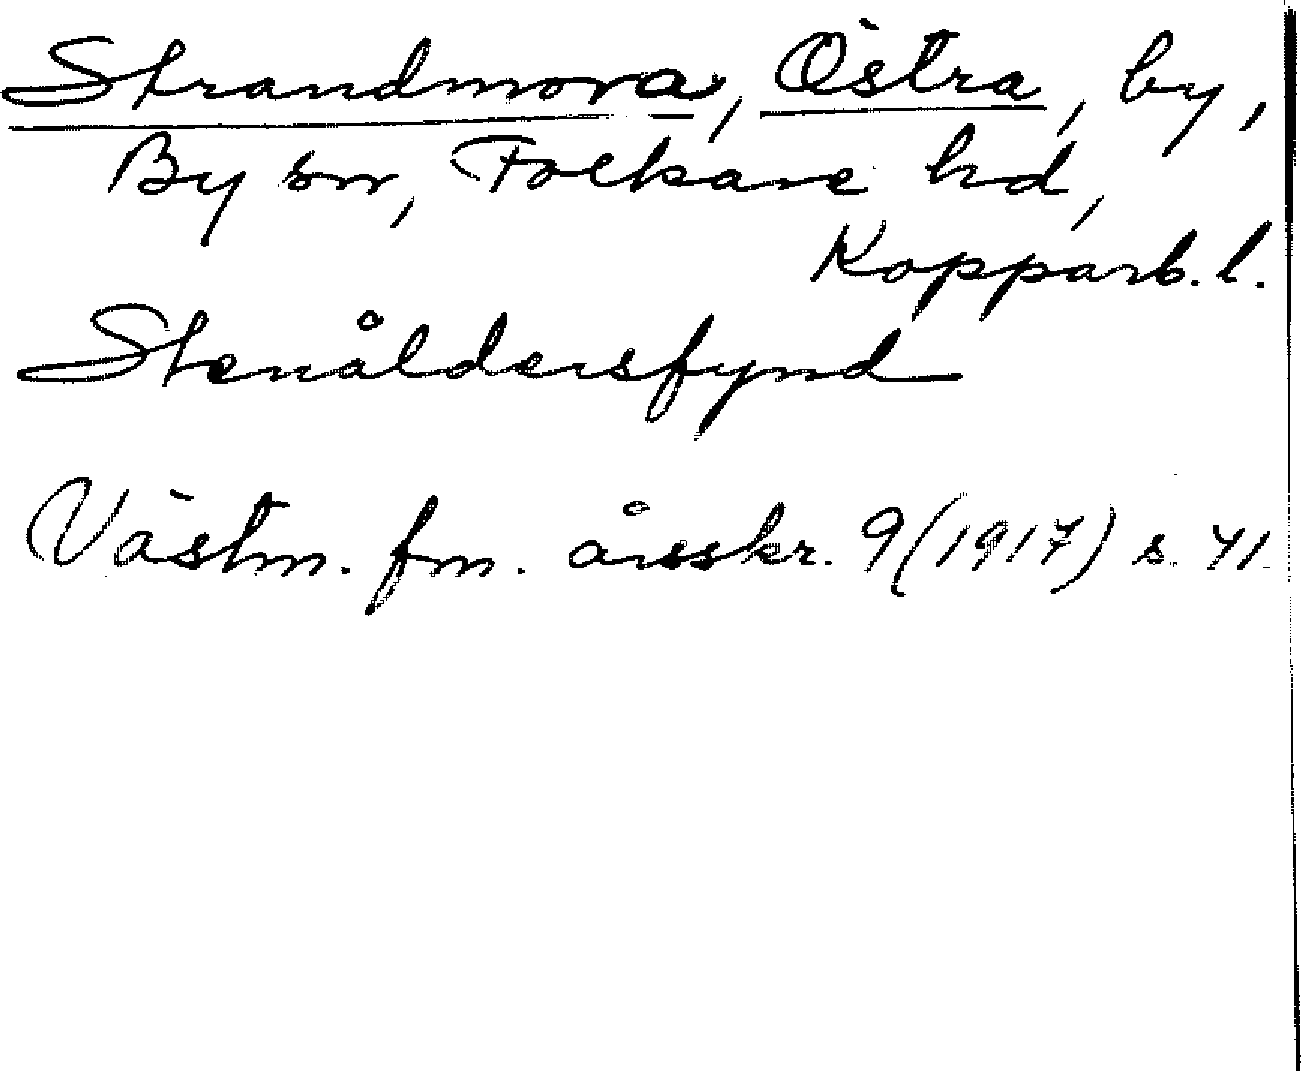 Strandmora, Östra, by,
By sn, Folkare hd,
Kopparb. l.
Stenåldersfynd
Västm. fm. årsskr. 9 (1917) s. 41